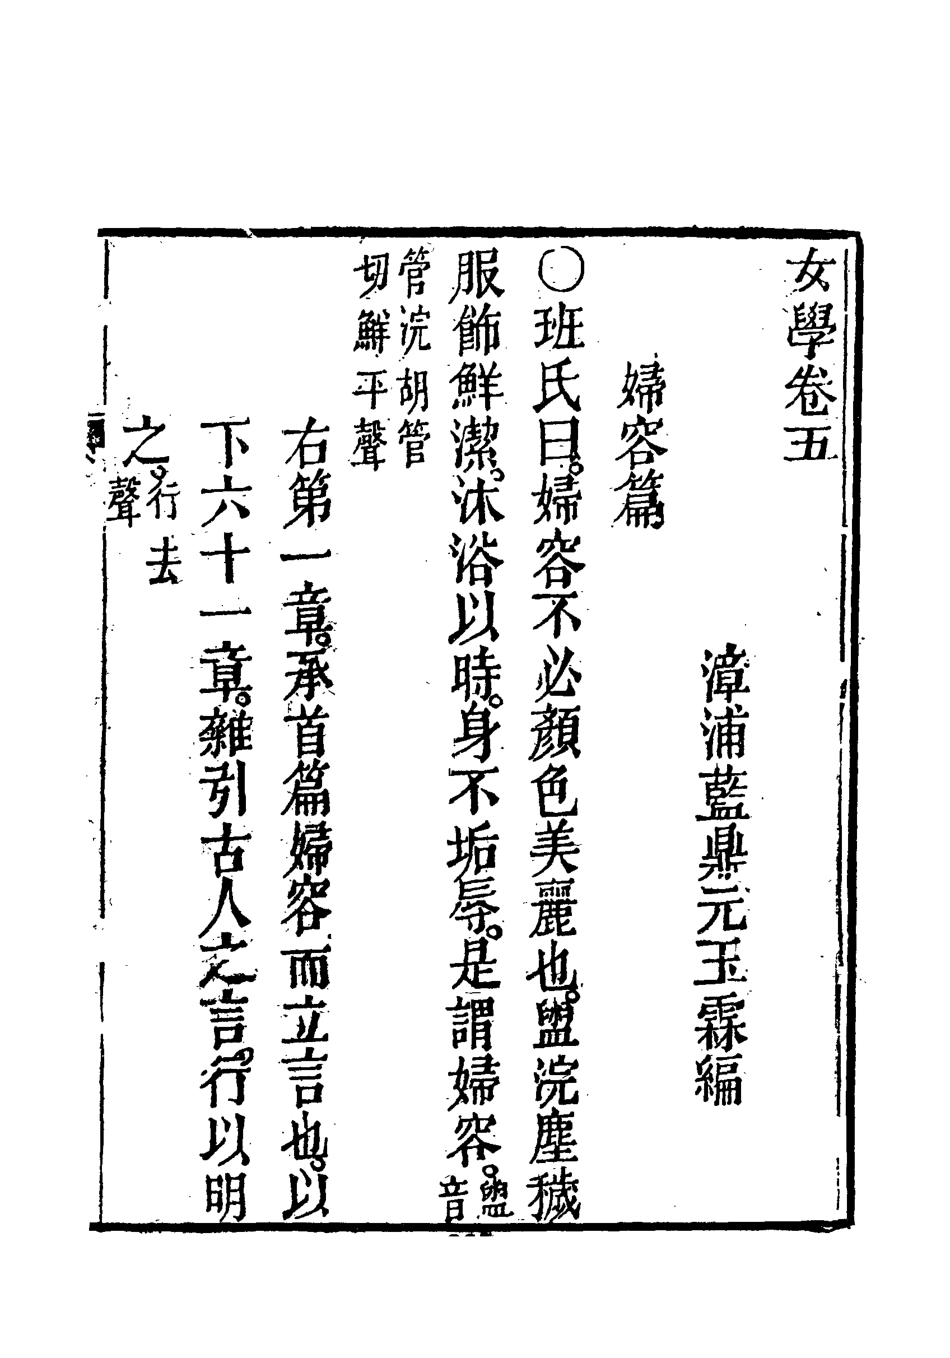 女學卷五
漳浦藍鼎元玉霖編
婦容篇
〇班氏曰。婦容不必顏色美麗也。盥浣塵穢
服飾鮮潔。沐浴以時。身不垢辱。是謂婦容。盥音
管浣胡管
切鮮平聲
右第一章。承首篇婦容而立言也。以
下六十一章。雜引古人之言。行以明
之。行去
聲